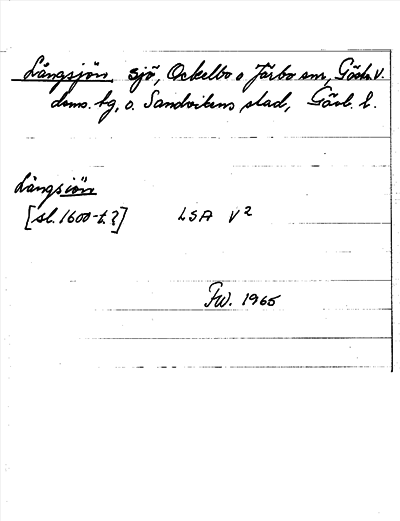 Långsjön, sjö, Ockelbo o Järbo snr, Gästr. V.
doms. tg, o. Sandvikens stad, Gävl. l.
Långsiön
[sl. 1600-t.?] LSA V2
FW. 1965